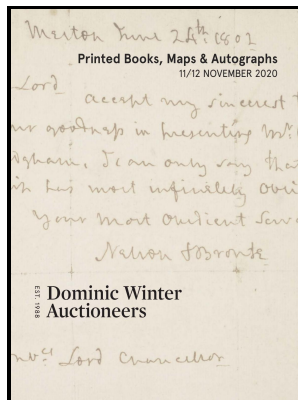 Merton June 24th 1802
Printed Books, Maps & Autographs
11/12 NOVEMBER 2020
Lord
accept my sincerest t
ur goodness in presenting Mr.
I can only say tha
has most infinitely obli
Your Most Obedient Serv
Nelson & Bronte
EST. 1988
Dominic Winter
Auctioneers
Lord Chancellor